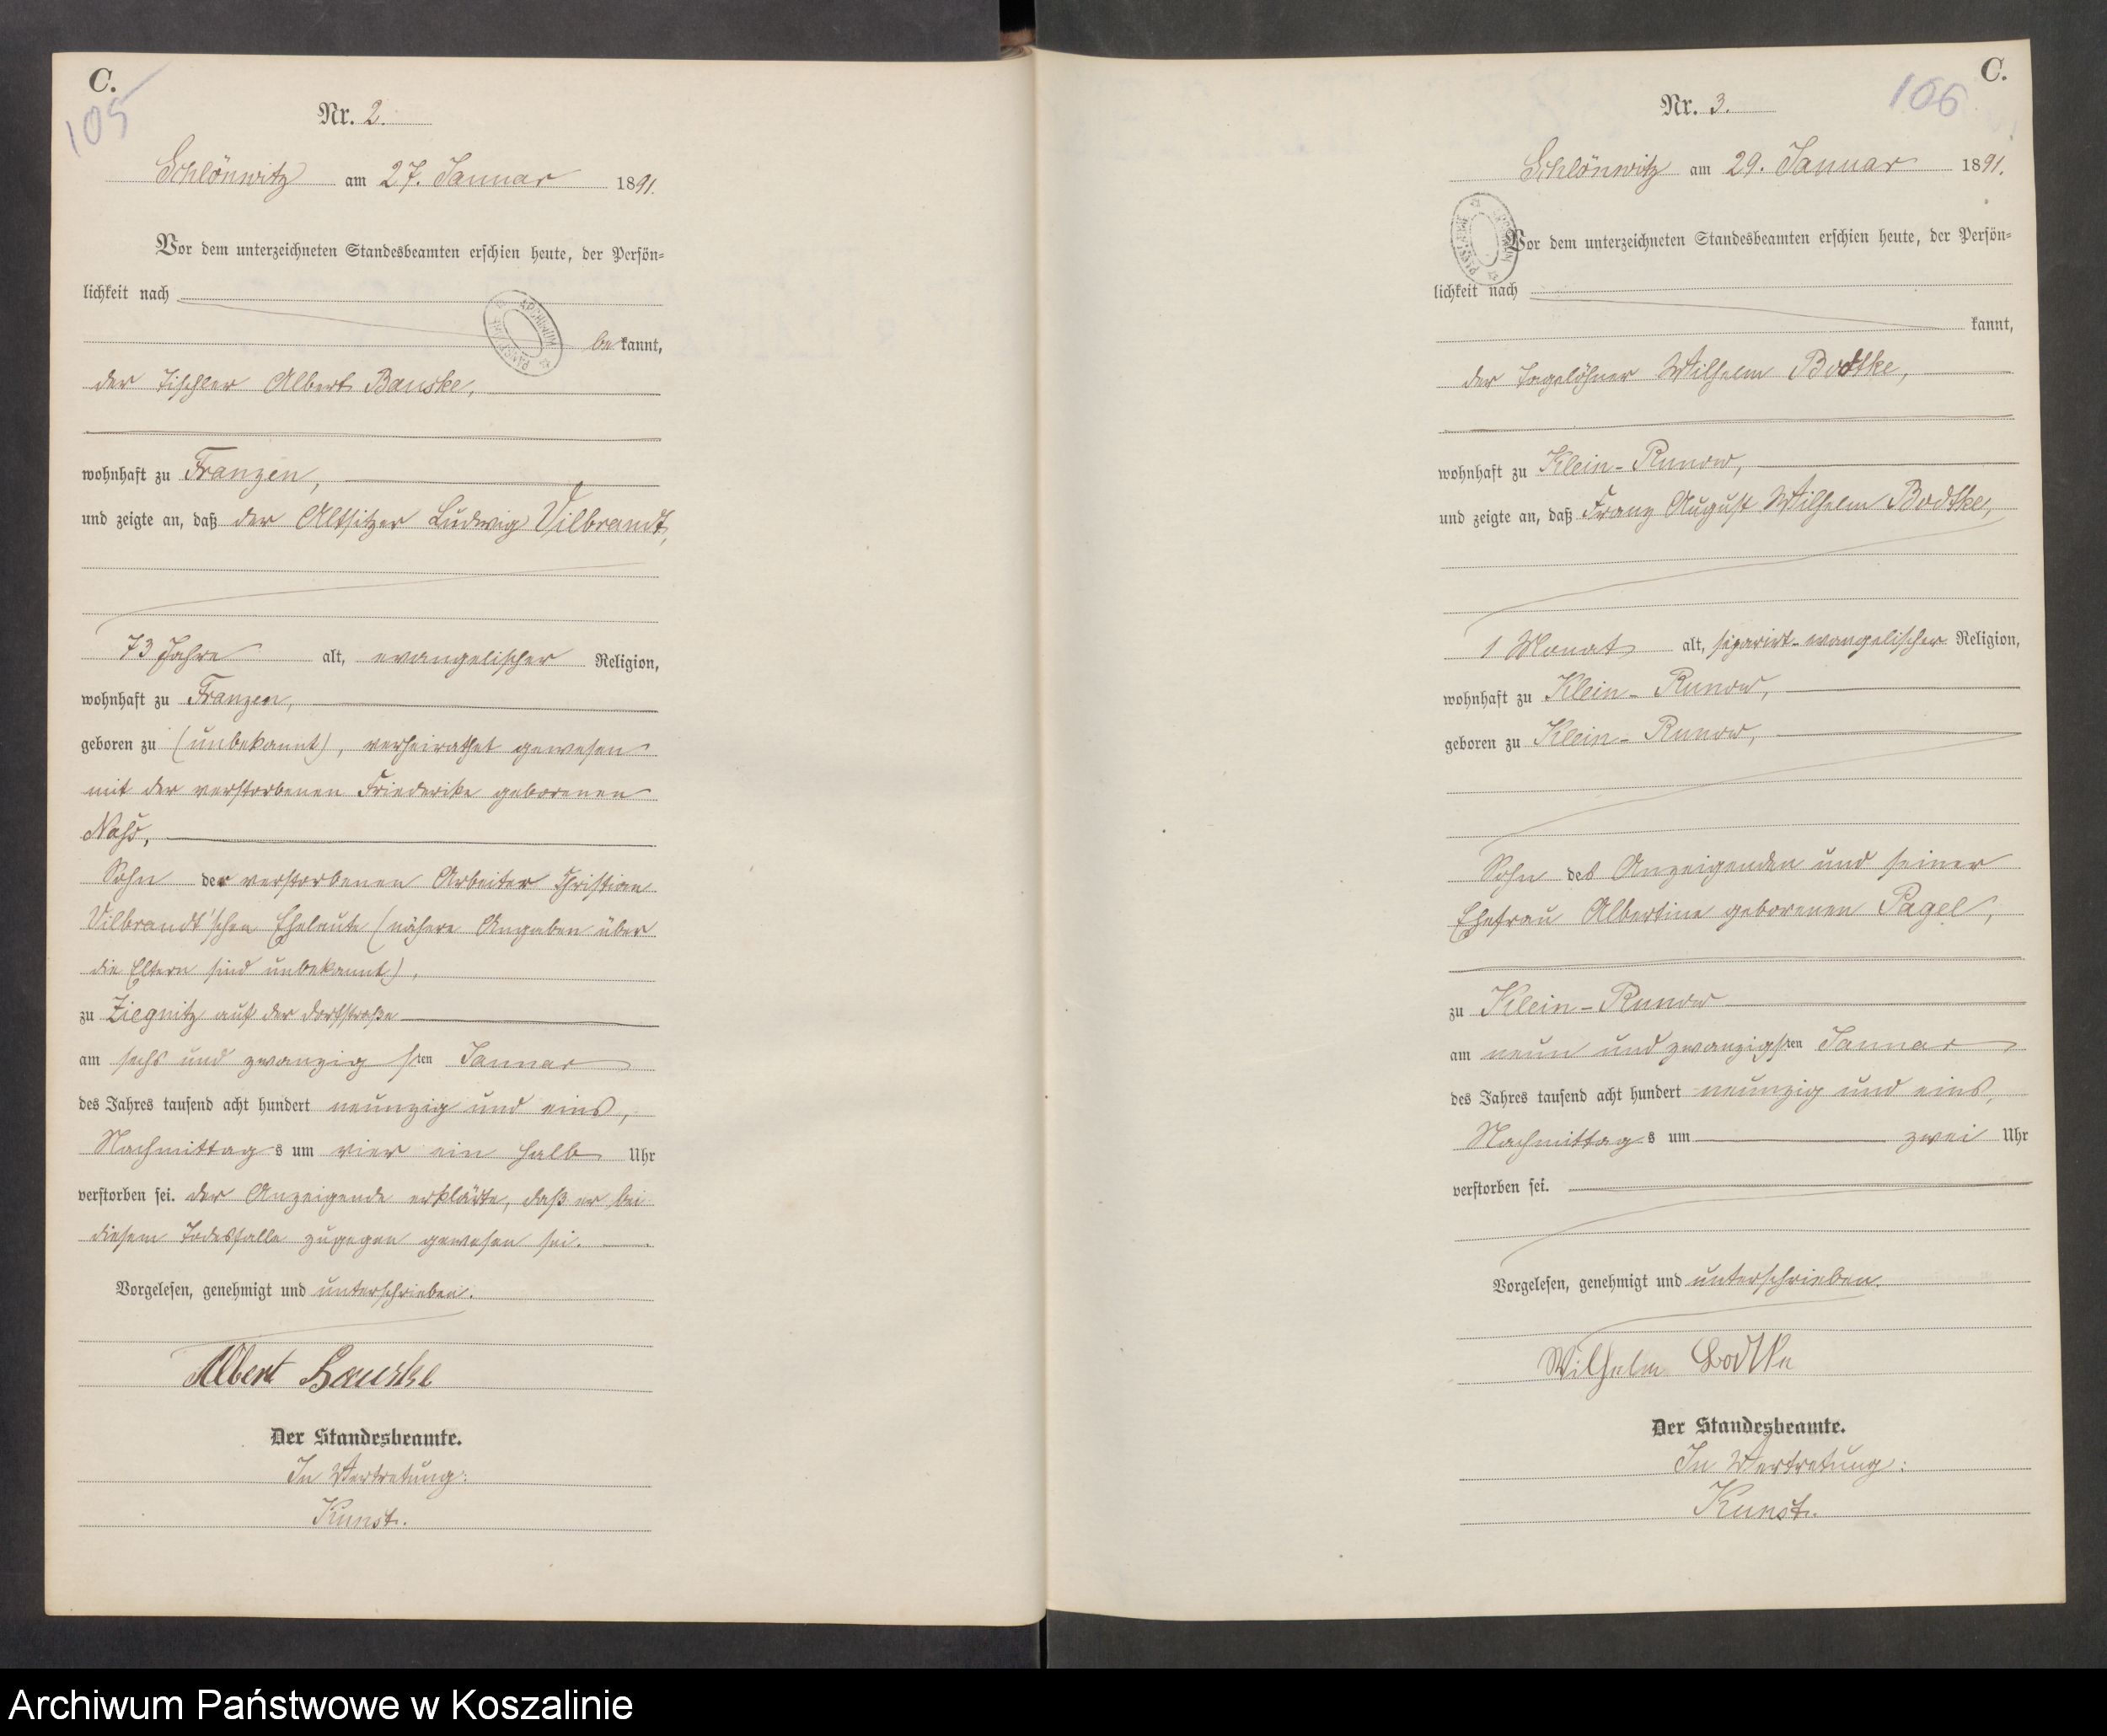 C.
105
Nr. 2.
Schlönwitz am 27. Januar 1891.
Vor dem unterzeichneten Standesbeamten erschien heute, der Persön-
lichkeit nach
be kannt,
der Tischler Albert Banske,
wohnhaft zu Franzen,
und zeigte an, daß der Altsitzer Ludwig Vilbrandt,
73 Jahre alt, evangelischer Religion,
wohnhaft zu Franzen,
geboren zu (unbekannt), verheirathet gewesen
mit der verstorbenen Friederike geborenen
Nahs,
Sohn der verstorbenen Arbeiter Christian
Vilbrandt'schen Eheleute (nähere Angaben über
die Eltern sind unbekannt),
zu Ziegnitz auf der Dorfstraße
am sechs und zwanzig sten Januar
des Jahres tausend acht hundert neunzig und eins,
Nachmittag s um vier ein halb Uhr
verstorben sei. Der Anzeigende erklärte, daß er bei
diesem Todesfalle zugegen gewesen sei.
Vorgelesen, genehmigt und unterschrieben.
Albert Banske
Der Standesbeamte.
In Vertretung:
Kunst.
C.
106
Nr. 3.
Schlönwitz am 29. Januar 1891.
Vor dem unterzeichneten Standesbeamten erschien heute, der Persön-
lichkeit nach
kannt,
der Tagelöhner Wilhelm Bodtke,
wohnhaft zu Klein-Runow,
und zeigte an, daß Franz August Wilhelm Bodtke,
1 Monat alt, separirt-evangelischer Religion,
wohnhaft zu Klein-Runow,
geboren zu Klein-Runow,
Sohn des Anzeigenden und seiner
Ehefrau Albertine geborenen Pagel,
zu Klein-Runow
am neun und zwanzigsten Januar
des Jahres tausend acht hundert neunzig und eins,
Nachmittag s um zwei Uhr
verstorben sei.
Vorgelesen, genehmigt und unterschrieben.
Wilhelm Bodtke
Der Standesbeamte.
In Vertretung:
Kunst.
Archiwum Państwowe w Koszalinie